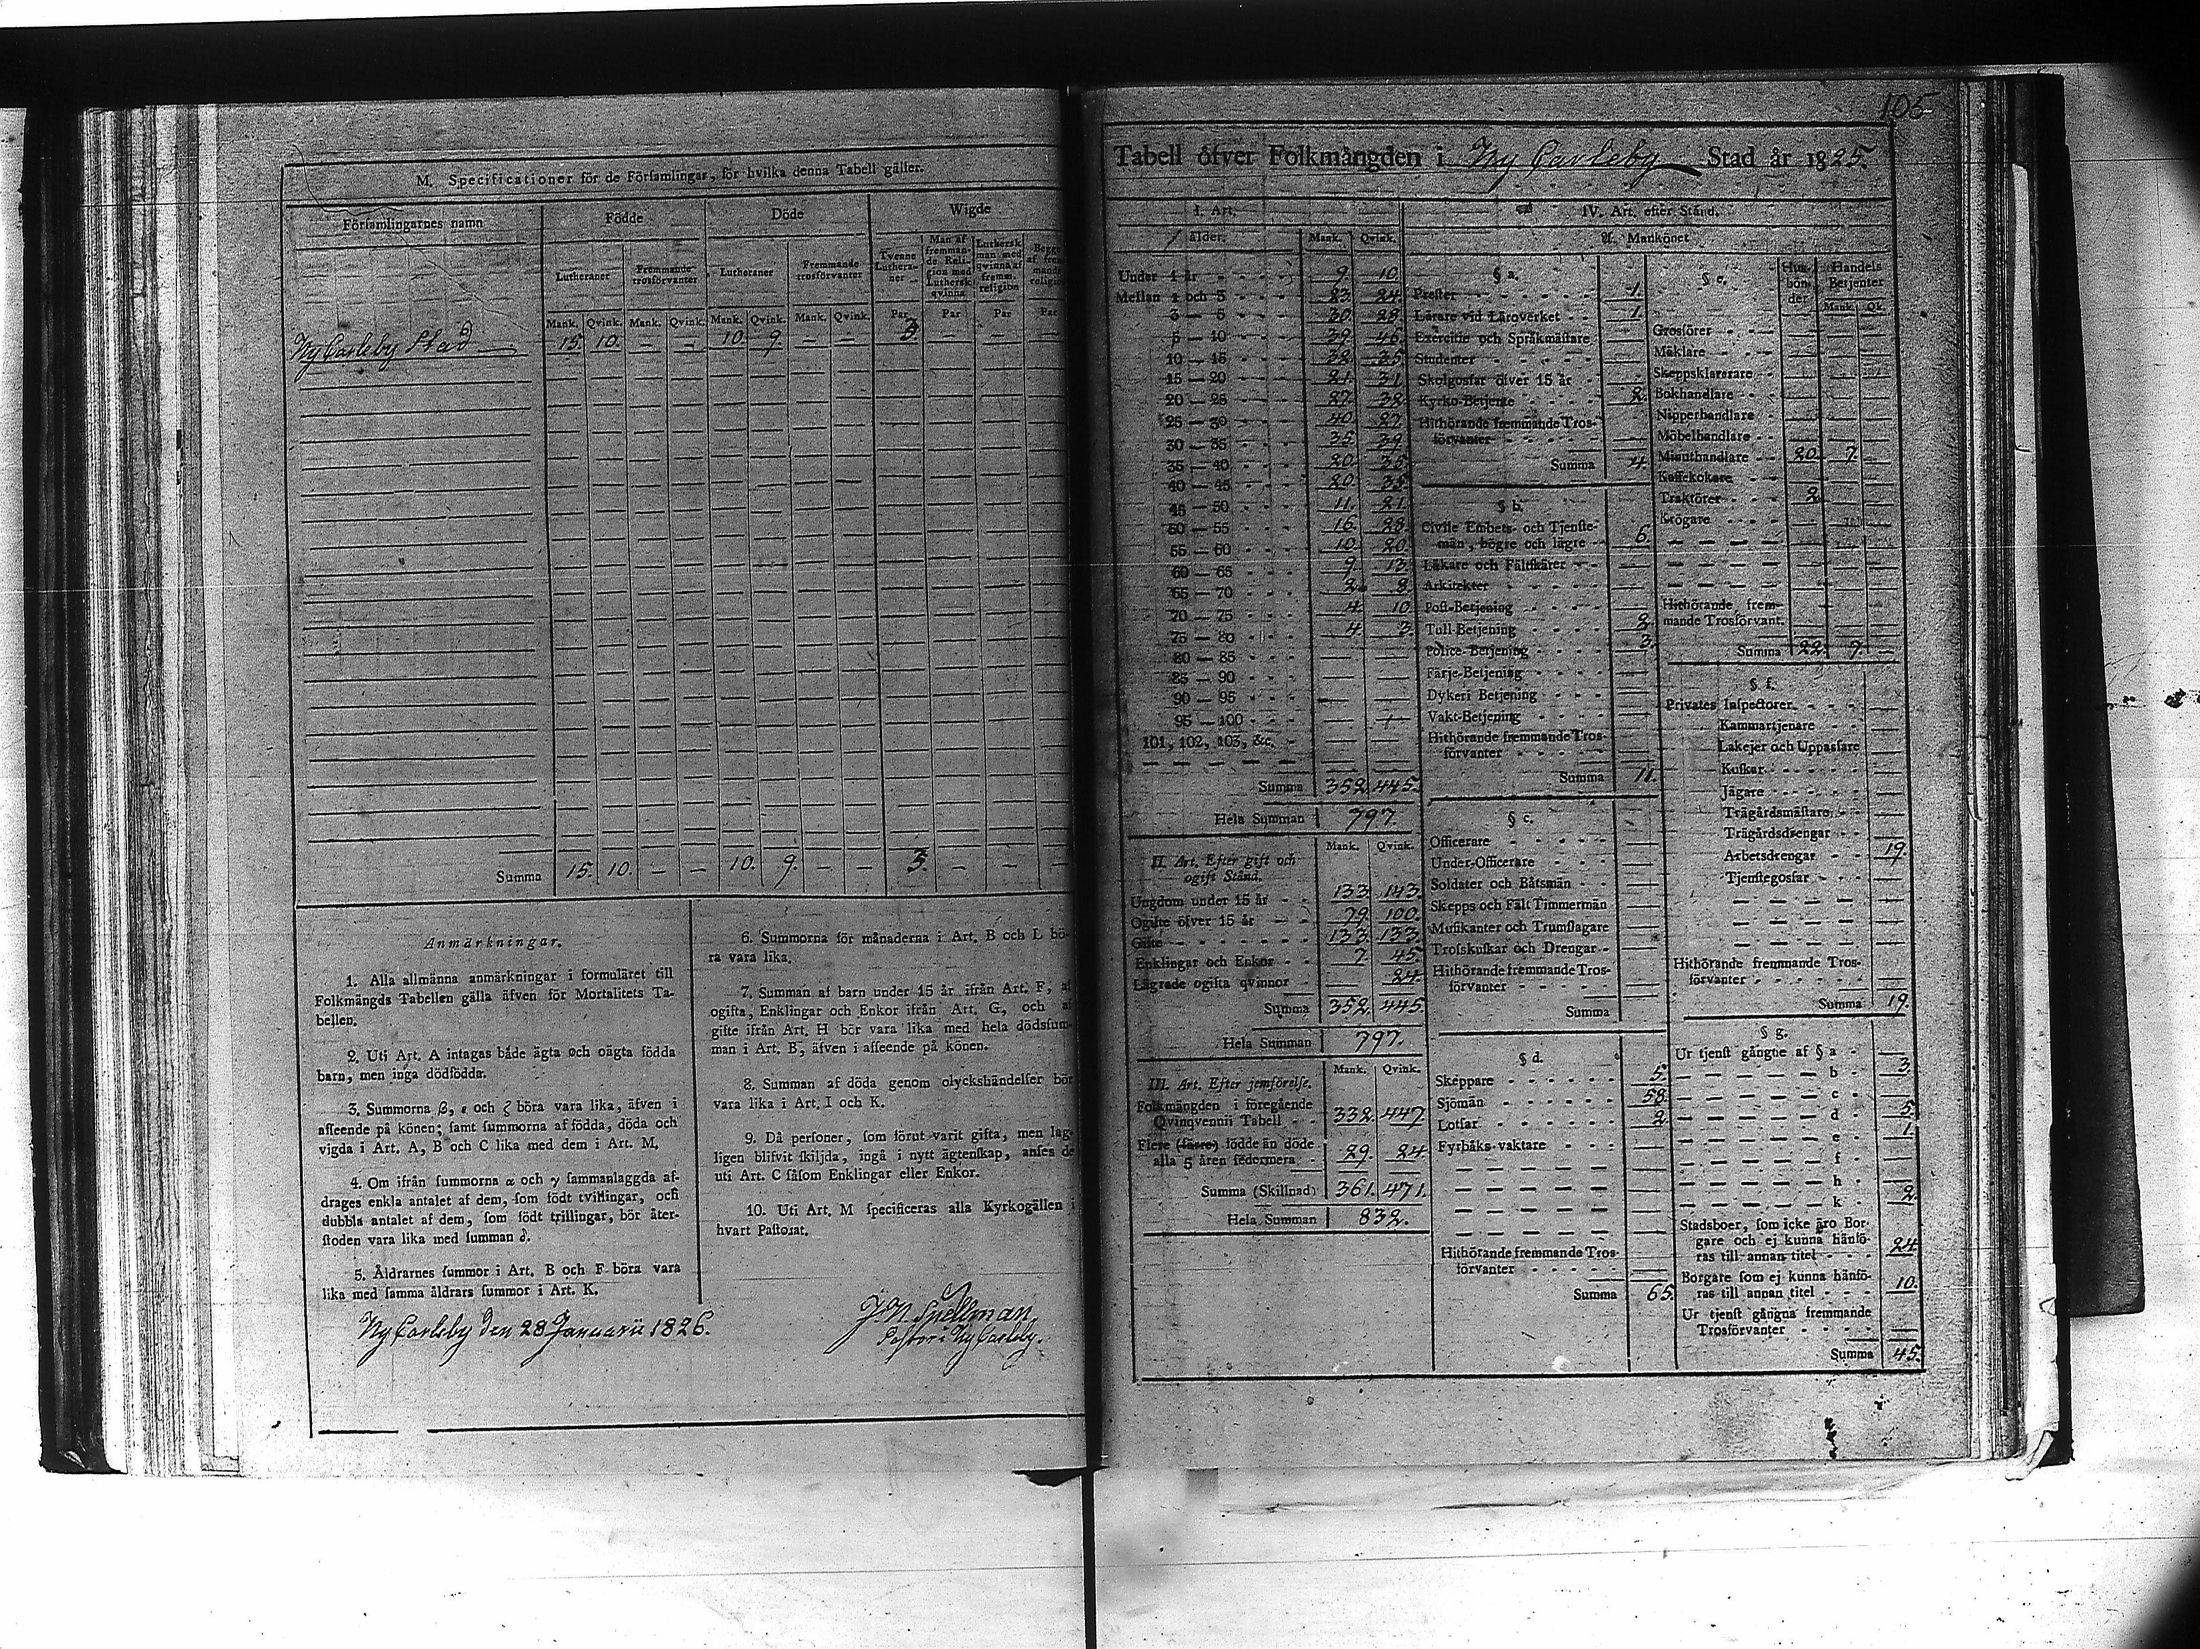 M. Specificationer för de Församlingar, för hvilka denna Tabell gäller.
Församlingarnes namn
Födde
Döde
Wigde
Lutheraner
Fremmande trosförvanter
Lutheraner
Fremmande trosförvanter
Tvenne Lutheraner
Man af fremmande Religion med Luthersk qvinna
Luthersk man med qvinna af fremm. religion
Mank. Qvink. Mank. Qvink. Mank. Qvink. Mank. Qvink. Par Par Par Par
Ny Carleby Stad 15. 10. — — 10. 9. — — 3. — — —
Summa 15. 10. — — 10. 9. — — 3. — — —
Anmärkningar.
1. Alla allmänna anmärkningar i formuläret till
Folkmängds Tabellen gälla äfven för Mortalitets Ta-
bellen.
2. Uti Art. A intagas både ägta och oägta födda
barn, men inga dödfödda.
3. Summorna β, ε och ζ böra vara lika, äfven i
afseende på könen; samt summorna af födda, döda och
vigda i Art. A, B och C lika med dem i Art. M.
4. Om ifrån summorna α och γ sammanlaggda af-
drages enkla antalet af dem, som födt tvillingar, och
dubbla antalet af dem, som födt trillingar, bör åter-
stoden vara lika med summan δ.
5. Åldrarnes summor i Art. B och F böra vara
lika med samma åldrars summor i Art. K.
6. Summorna för månaderna i Art. B och L bö-
ra vara lika.
7. Summan af barn under 15 år ifrån Art. F, af
ogifta, Enklingar och Enkor ifrån Art. G, och af
gifte ifrån Art. H bör vara lika med hela dödsum-
man i Art. B, äfven i afseende på könen.
8. Summan af döda genom olyckshändelser bör
vara lika i Art. I och K.
9. Då personer, som förut varit gifta, men lag-
ligen blifvit skiljda, ingå i nytt ägtenskap, anses de
uti Art. C såsom Enklingar eller Enkor.
10. Uti Art. M specificeras alla Kyrkogällen i
hvart Pastorat.
Ny Carleby den 28 Januarii 1826.
Pastor i Ny Carleby.
105
Tabell öfver Folkmängden i Ny Carleby Stad år 1825.
I. Art.
ålder. Mank. Qvink.
Under 1 år 9. 10.
Mellan 1 och 3 23. 24.
3 — 5 30. 28.
5 — 10 39. 46.
10 — 15 38. 35.
15 — 20 21. 31.
20 — 25 27. 38.
25 — 30 40. 27.
30 — 35 35. 39.
35 — 40 20. 35.
40 — 45 20. 35.
45 — 50 11. 21.
50 — 55 16. 28.
55 — 60 10. 20.
60 — 65 9. 13.
65 — 70 2. 8.
70 — 75 4. 10.
75 — 80 4. 3.
80 — 85 — —
85 — 90 — —
90 — 95 — —
95 — 100
101, 102, 103, &c. — —
Summa 352. 445.
Hela Summan 797.
II. Art. Efter gift och
ogift Stånd.
Mank. Qvink.
Ungdom under 15 år 133. 143.
Ogifte öfver 15 år 79. 100.
Gifte 133. 133.
Enklingar och Enkor 7. 45.
Lägrade ogifta qvinnor — 24.
Summa 352. 445.
Hela Summan 797.
III. Art. Efter jemförelse.
Mank. Qvink.
Folkmängden i föregående
Qvinqvennii Tabell 332. 447.
Flere (färre) födde än döde
alla 5 åren sedermera 29. 24.
Summa (Skillnad) 361. 471.
Hela Summan 832.
IV. Art. efter Stånd.
A. Mankönet
§ a.
Prester 1.
Lärare vid Läroverket 1.
Exercitie och Språkmästare
Studenter
Skolgossar öfver 15 år
Kyrko-Betjente 2.
Hithörande fremmande Tros-
förvanter
Summa 4.
§ b.
Civile Embets- och Tjenste-
män, högre och lägre 6.
Läkare och Fältskärer
Arkitekter
Post-Betjening
Tull-Betjening 2.
Police-Betjening 3.
Färje-Betjening
Dykeri Betjening
Vakt-Betjening
Hithörande fremmande Tros-
förvanter
Summa 11.
§ c.
Officerare
Under-Officerare
Soldater och Båtsmän
Skepps och Fält Timmermän
Musikanter och Trumslagare
Trosskuskar och Drengar
Hithörande fremmande Tros-
förvanter
Summa
§ d.
Skeppare 5.
Sjömän 58.
Lotsar 2.
Fyrbåks-vaktare
Hithörande fremmande Tros-
förvanter
Summa 65.
§ e.
Husbönder
Handels Betjenter
Mank. Qk.
Grosörer
Mäklare
Skeppsklarerare
Bokhandlare
Nipperhandlare
Möbelhandlare
Minuthandlare 20. 7. —
Kaffekokare
Traktörer 2.
Krögare
Hithörande frem-
mande Trosförvant.
Summa 22. 7. —
§ f.
Privates Inspectorer
Kammartjenare
Lakejer och Uppassare
Kuskar
Jägare
Trägårdsmästare
Trägårdsdrengar
Arbetsdrengar 19.
Tjenstegossar
Hithörande fremmande Tros-
förvanter
Summa 19.
§ g.
Ur tjenst gångne af § a —
b 3.
c —
d 5.
e 1.
f —
h —
k 2.
Stadsboer, som icke äro Bor-
gare och ej kunna hänfö-
ras till annan titel 24.
Borgare som ej kunna hänfö-
ras till annan titel 10.
Ur tjenst gångna fremmande
Trosförvanter
Summa 45.